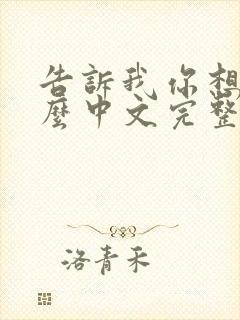 告訴我你想
麼中文完整
洛青禾